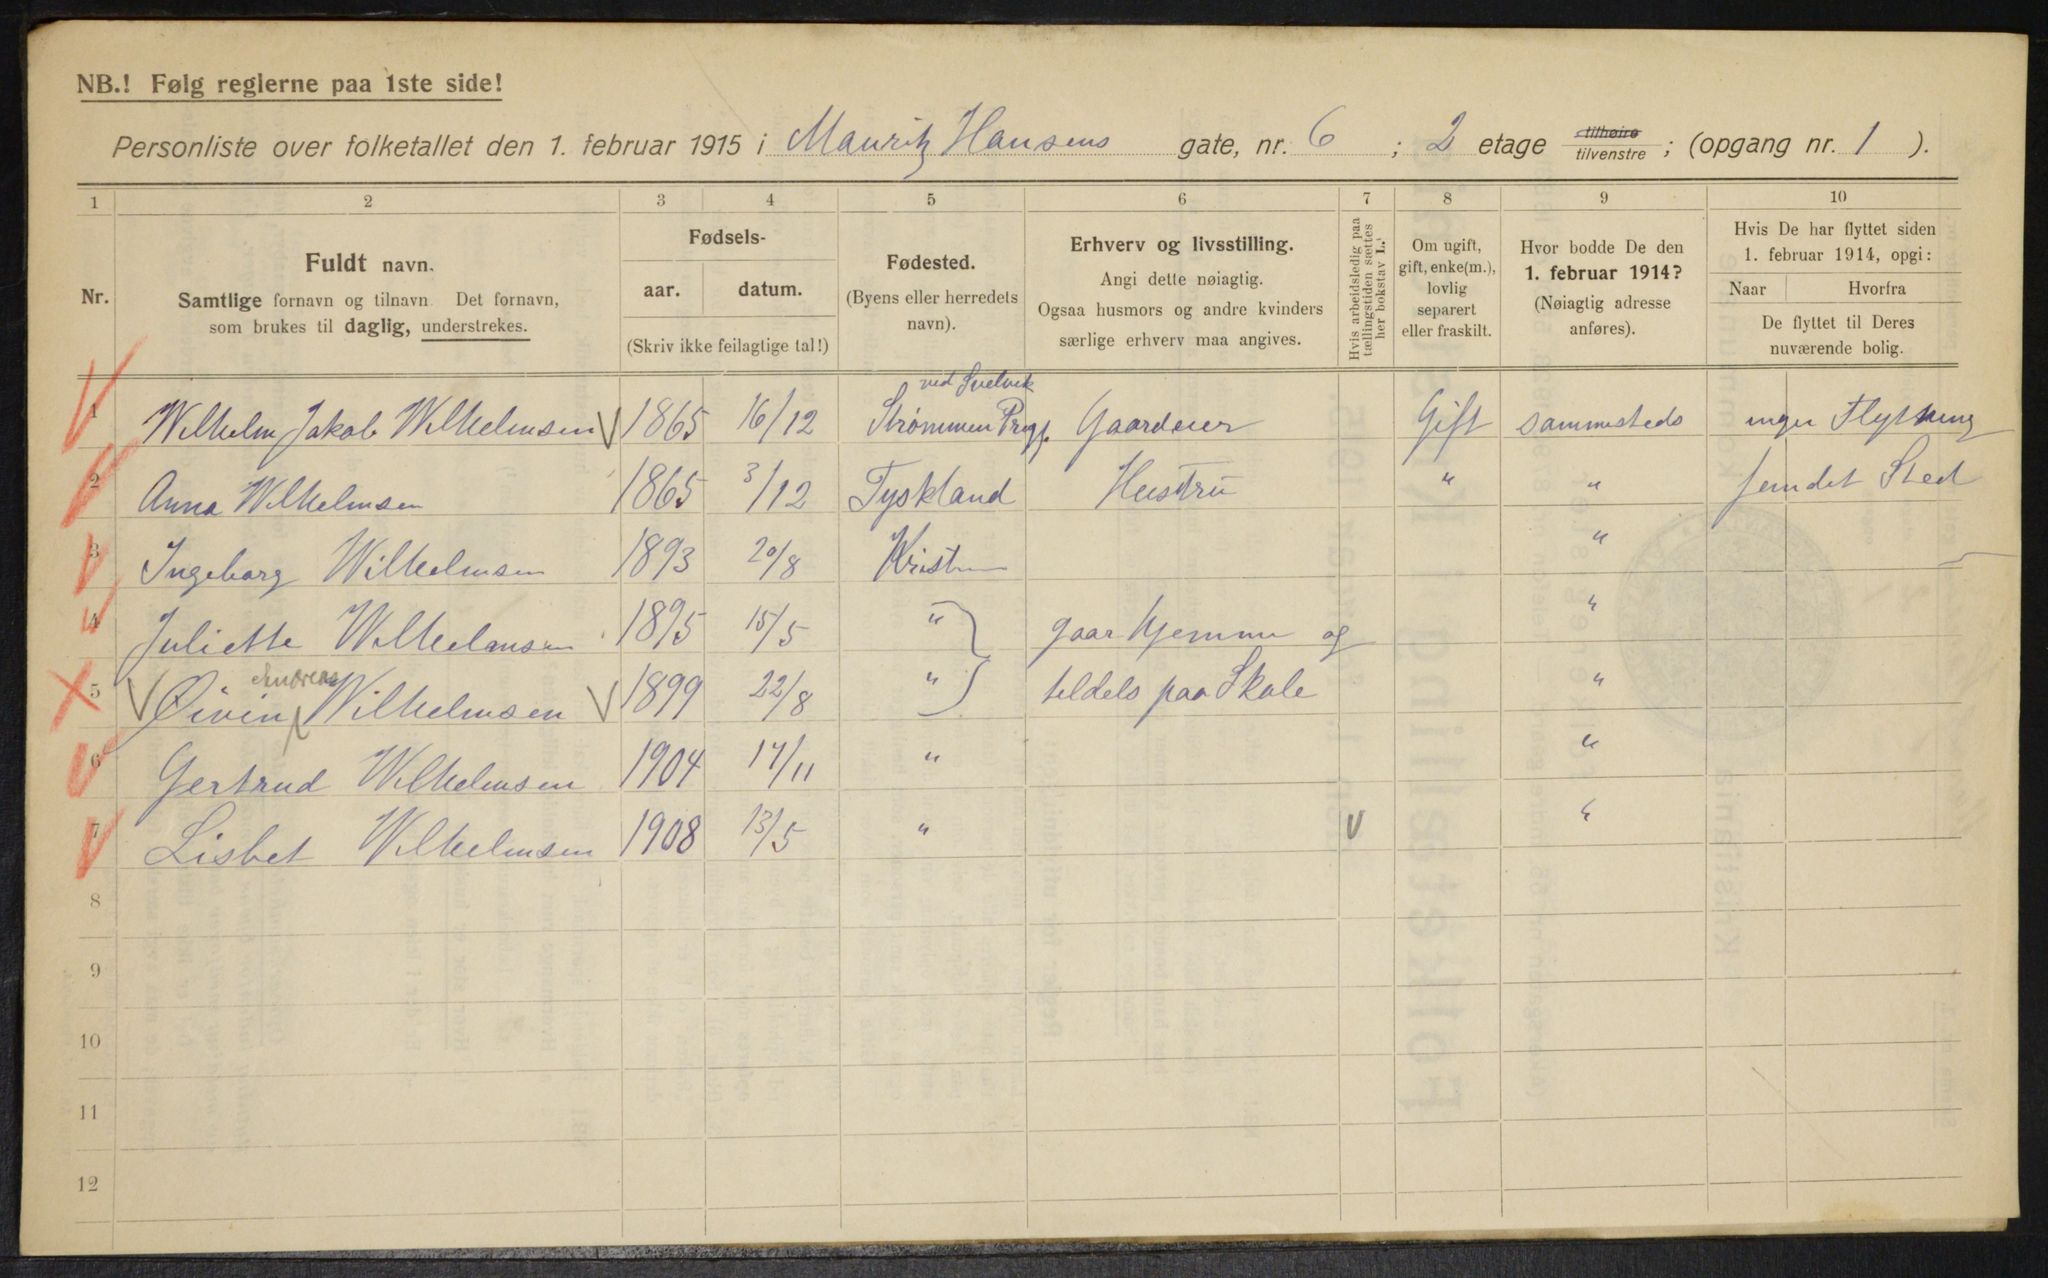 NB.! Følg reglerne paa 1ste side!
Personliste over folketallet den 1. februar 1915 i Mauritz Hansens gate, nr. 6 ; 2 etage tilhøire tilvenstre ; (opgang nr. 1 ).
1 2 3 4 5 6 7 8 9 10
Nr.
Fuldt navn.
Samtlige fornavn og tilnavn Det fornavn,
som brukes til daglig, understrekes.
Fødsels-
aar. datum.
(Skriv ikke feilagtige tal!)
Fødested.
(Byens eller herredets
navn).
Erhverv og livsstilling.
Angi dette nøiagtig.
Ogsaa husmors og andre kvinders
særlige erhverv maa angives.
Hvis arbeidsledig paa
tællingstiden sættes
her bokstav L.
Om ugift,
gift, enke(m.),
lovlig
separert
eller fraskilt.
Hvor bodde De den
1. februar 1914?
(Nøiagtig adresse
anføres).
Hvis De har flyttet siden
1. februar 1914, opgi:
Naar Hvorfra
De flyttet til Deres
nuværende bolig.
ved Svelvik
1 Wilhelm Jakob Wilhelmsen 1865 16/12 Strømmen Gaardeier Gift sammesteds ingen Flytning
2 Anna Wilhelmsen 1865 3/12 Tyskland Hustru " " Sted
3 Ingeborg Wilhelmsen 1893 20/8 Kristia "
4 Juliette Wilhelmsen 1895 15/5 " gaar hjemme og "
5 Øivin Wilhelmsen 1899 22/8 " tildels paa Skole "
6 Gertrud Wilhelmsen 1904 17/11 " "
7 Lisbet Wilhelmsen 1908 13/5 " "
8
9
10
11
12